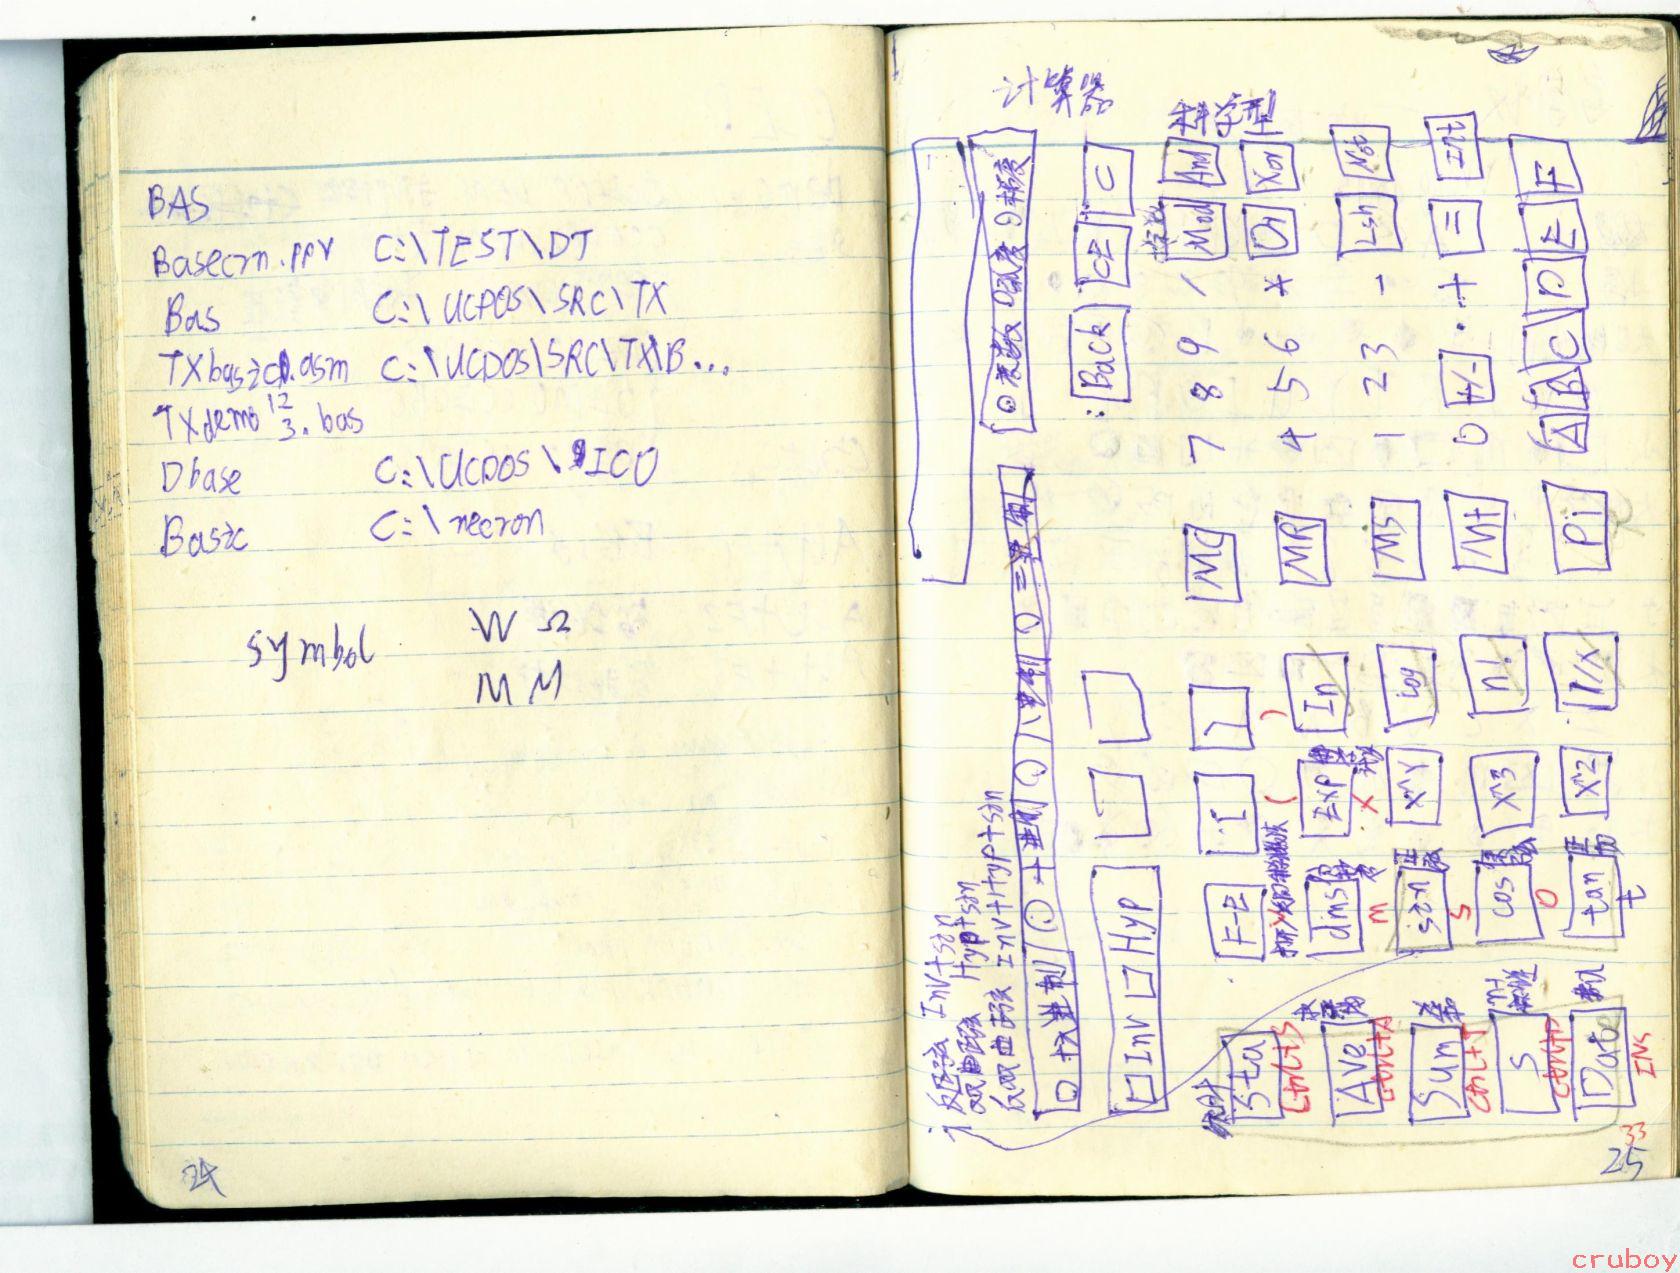 BAS
Basecrn.ppr C:\TEST\DT
Bas C:\UCPOS\SRC\TX
TXbasic.asm C:\UCDOS\SRC\TX\B...
TXdemo 12 3.bas
Dbase C:\UCDOS\ICO
Basic C:\necron
symbol W Ω
M M
24
计算器
科学型
角度 弧度 梯度
十六进制 十进制 八进制 二进制
反正弦 Inv+sin
双曲正弦 Hyp+sin
反双曲正弦 Inv+Hyp+sin
Inv Hyp
Back CE C
Sta F-E ( ) MC 7 8 9 / Mod And
Ctrl+S ( )
Ave dms Exp ln MR 4 5 6 * Or Xor
Ctrl+A m x
Sum sin x^Y log MS 1 2 3 - Lsh Not
Ctrl+T s
S cos x^3 n! M+ 0 +/- . + = Int
Ctrl+D o
Dat tan x^2 1/x Pi A B C D E F
INS t
33
25
cruboy